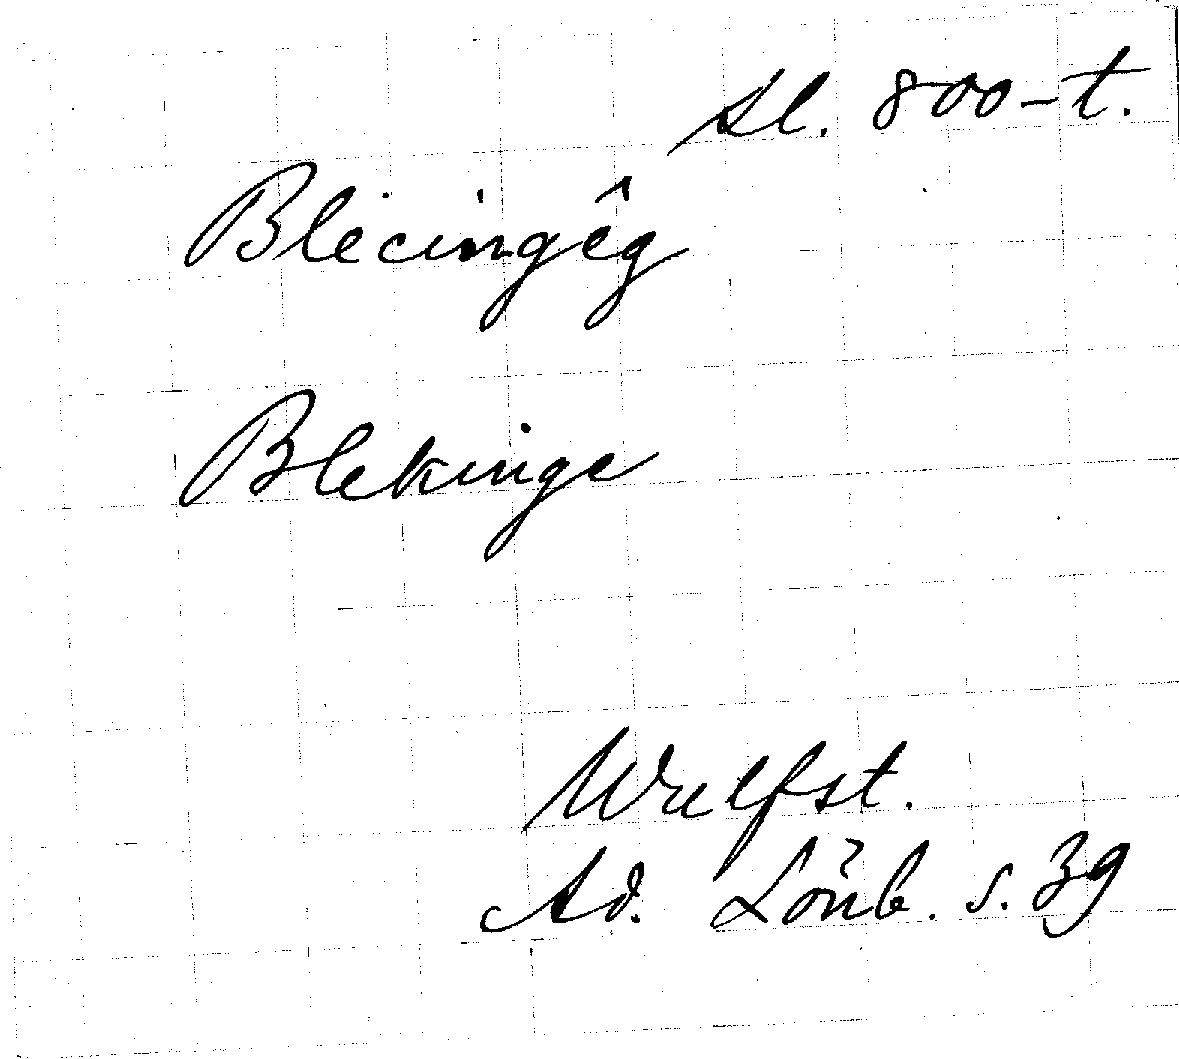 sl. 800-t.
Blecingêg
Blekinge
Wulfst.
Ad. Lönb. s. 39